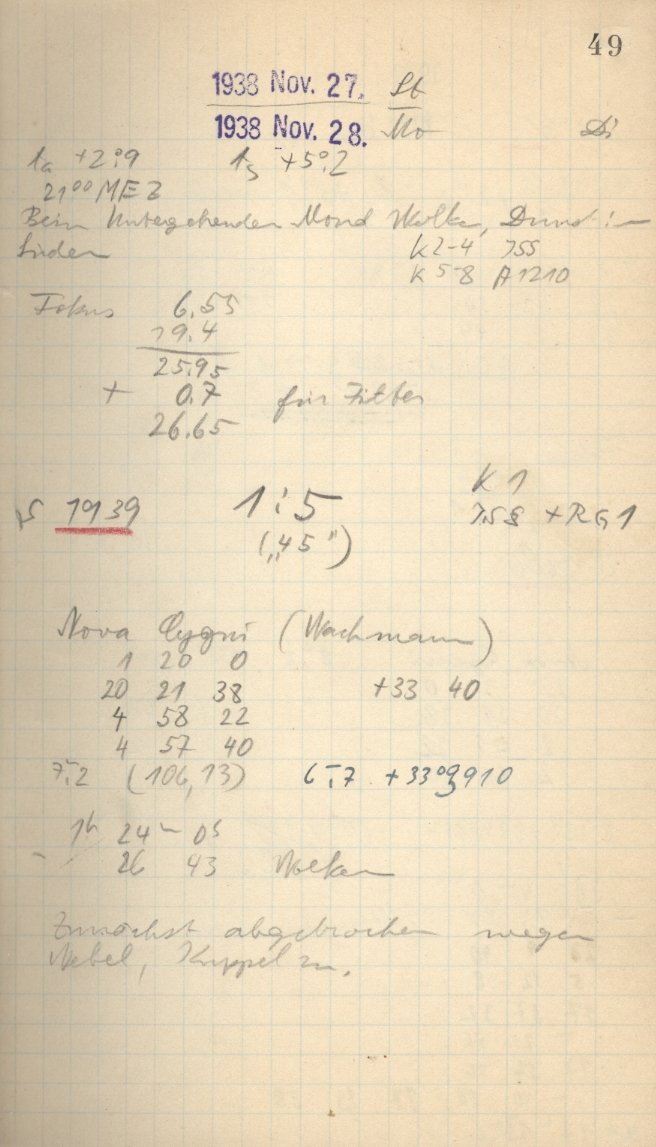 49
1938 Nov. 27. St
1938 Nov. 28. Mo Di
+2°.9 +5°.2
21 00 MEZ
Beim Untergehenden Mond Wolken, Dunst im
Süden K 2-4 JSS
K 5-8 A 1210
Fokus 6.55
19.4
25.95
+ 0.7 für Filter
26.65
K 1
S 1939 1:5 + RG 1
("45")
Nova Cygni (Wachmann)
1 20 0
20 21 38 +33 40
4 58 22
4 57 40
7m.2 (106,13) 6m.7 +33° 3910
1h 24m 0s
26 43 Wolken
Zunächst abgebrochen wegen
Nebel, Kuppel zu.